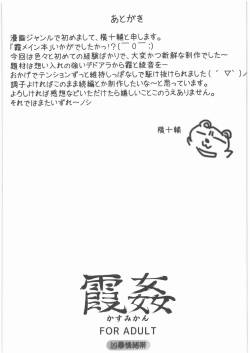 あとがき
漫画ジャンルで初めまして、横十輔と申します。
『霞メイン本』いかがでしたかっ!?(￣○￣;)
今回は色々と初めての経験ばかりで、大変かつ新鮮な制作でした～
題材は想い入れの強いデドアラから霞と綾音を～
おかげでテンションずっと維持しっぱなしで駆け抜けられました(´▽`)ノ
調子よければこのまま続編とか制作したいな～と思っています。
よろしければ感想などいただけたら嬉しいことこのうえありません。
それではまたいずれーノシ
横十輔
霞姦
かすみかん
FOR ADULT